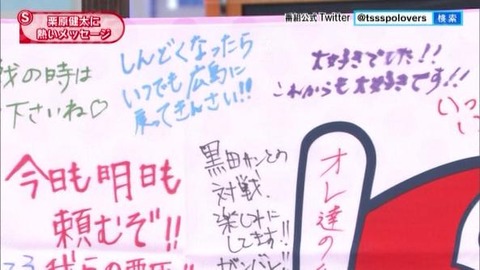 S 栗原健太に
熱いメッセージ
番組公式Twitter @tssspolovers 検索
戦の時は
下さいね♡
しんどくなったら
いつでも広島に
戻ってきんさい!!
大好きでした!!
これからも大好きです!!
いつ
今日も明日も
頼むぞ!!
黒田サンとの
対戦、
楽しみに
してます!!
ガンバレ!!
オレ達の